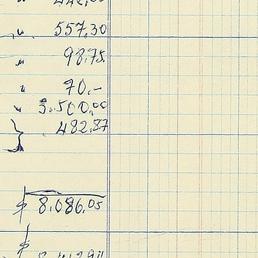 " 557,30
" 98,75
" 70.-
" 3.500,00
482,87
$ 8.086,05